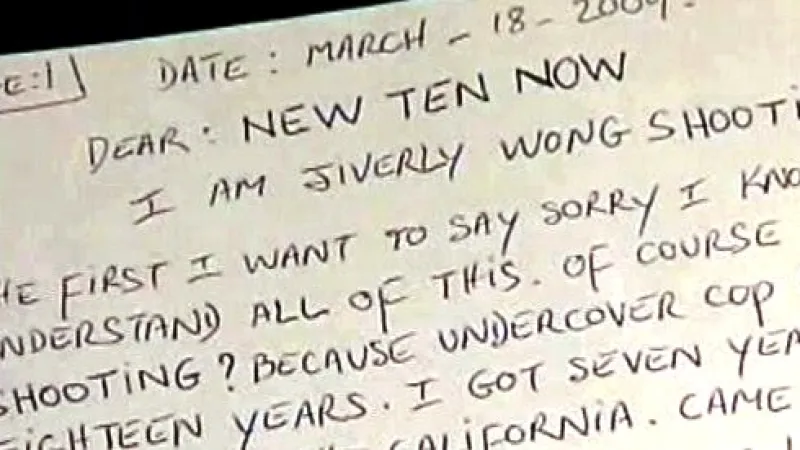 E:1
DATE: MARCH - 18 - 2009.
DEAR: NEW TEN NOW
I AM JIVERLY WONG SHOOTI
HE FIRST I WANT TO SAY SORRY I KNO
NDERSTAND ALL OF THIS. OF COURSE
SHOOTING? BECAUSE UNDERCOVER COP
EIGHTEEN YEARS. I GOT SEVEN YEA
CALIFORNIA. CAME